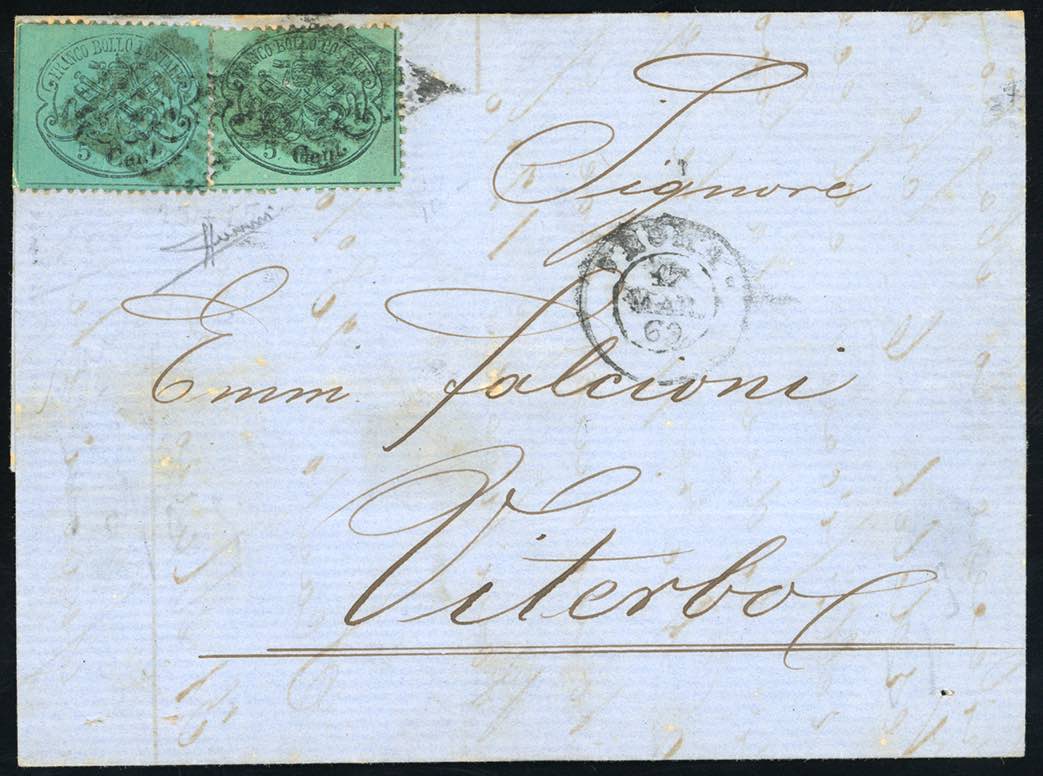 FRANCO BOLLO POSTALE
5 Cent.
FRANCO BOLLO POSTALE
5 Cent.
Signore
MAR
69
Emm. Falcioni
Viterbo